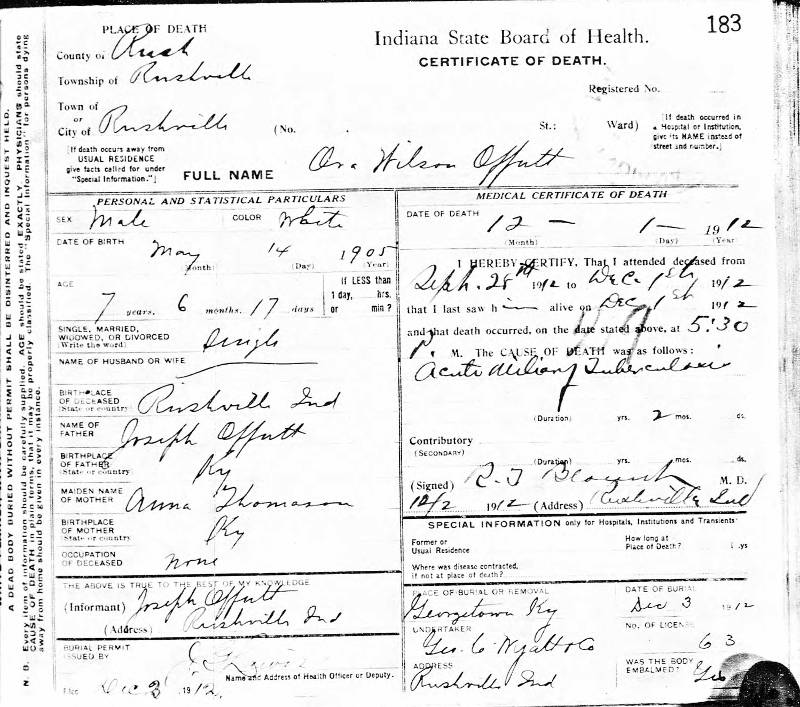 183
PLACE OF DEATH
County of Rush
Township of Rushville
Town of
or
City of Rushville (No. St.; Ward)
[If death occurs away from
USUAL RESIDENCE
give facts called for under
"Special Information."]
Indiana State Board of Health.
CERTIFICATE OF DEATH.
Registered No.
[If death occurred in
a Hospital or Institution,
give its NAME instead of
street and number.]
FULL NAME Ora Wilson Offutt
PERSONAL AND STATISTICAL PARTICULARS
SEX Male COLOR White
DATE OF BIRTH May 14 1905
(Month) (Day) (Year)
AGE
7 years, 6 months, 17 days
If LESS than
1 day, hrs.
or min?
SINGLE, MARRIED,
WIDOWED, OR DIVORCED
(Write the word) Single
NAME OF HUSBAND OR WIFE
BIRTHPLACE
OF DECEASED
(State or country) Rushville Ind
NAME OF
FATHER Joseph Offutt
BIRTHPLACE
OF FATHER
(State or country) Ky
MAIDEN NAME
OF MOTHER Anna Thomason
BIRTHPLACE
OF MOTHER
(State or country) Ky
OCCUPATION
OF DECEASED none
THE ABOVE IS TRUE TO THE BEST OF MY KNOWLEDGE
(Informant) Joseph Offutt
(Address) Rushville Ind
BURIAL PERMIT
ISSUED BY
Name and Address of Health Officer or Deputy.
Filed Dec 3 1912.
MEDICAL CERTIFICATE OF DEATH
DATE OF DEATH 12 - 1 - 1912
(Month) (Day) (Year)
I HEREBY CERTIFY, That I attended deceased from
Seph. 28th 1912 to Dec. 1st 1912
that I last saw him alive on Dec 1st 1912
and that death occurred, on the date stated above, at 5:30
P. M. The CAUSE OF DEATH was as follows:
Acute Miliary Tuberculosis
(Duration) yrs. 2 mos. ds.
Contributory
(SECONDARY)
(Duration) yrs. mos. ds.
(Signed) M. D.
12/2 1912 (Address) Rushville Ind
SPECIAL INFORMATION only for Hospitals, Institutions and Transients
Former or
Usual Residence
How long at
Place of Death?
Where was disease contracted,
if not at place of death?
PLACE OF BURIAL OR REMOVAL
Georgetown Ky
DATE OF BURIAL
Dec 3 1912
UNDERTAKER
Geo. C Wyatt & Co
No. OF LICENSE
63
ADDRESS
Rushville Ind
WAS THE BODY
EMBALMED? Yes
A DEAD BODY BURIED WITHOUT PERMIT SHALL BE DISINTERRED AND INQUEST HELD.
N. B. Every item of information should be carefully supplied. AGE should be stated EXACTLY. PHYSICIANS should state
CAUSE OF DEATH in plain terms, that it may be properly classified. The "Special Information" for persons dying
away from home should be given in every instance.